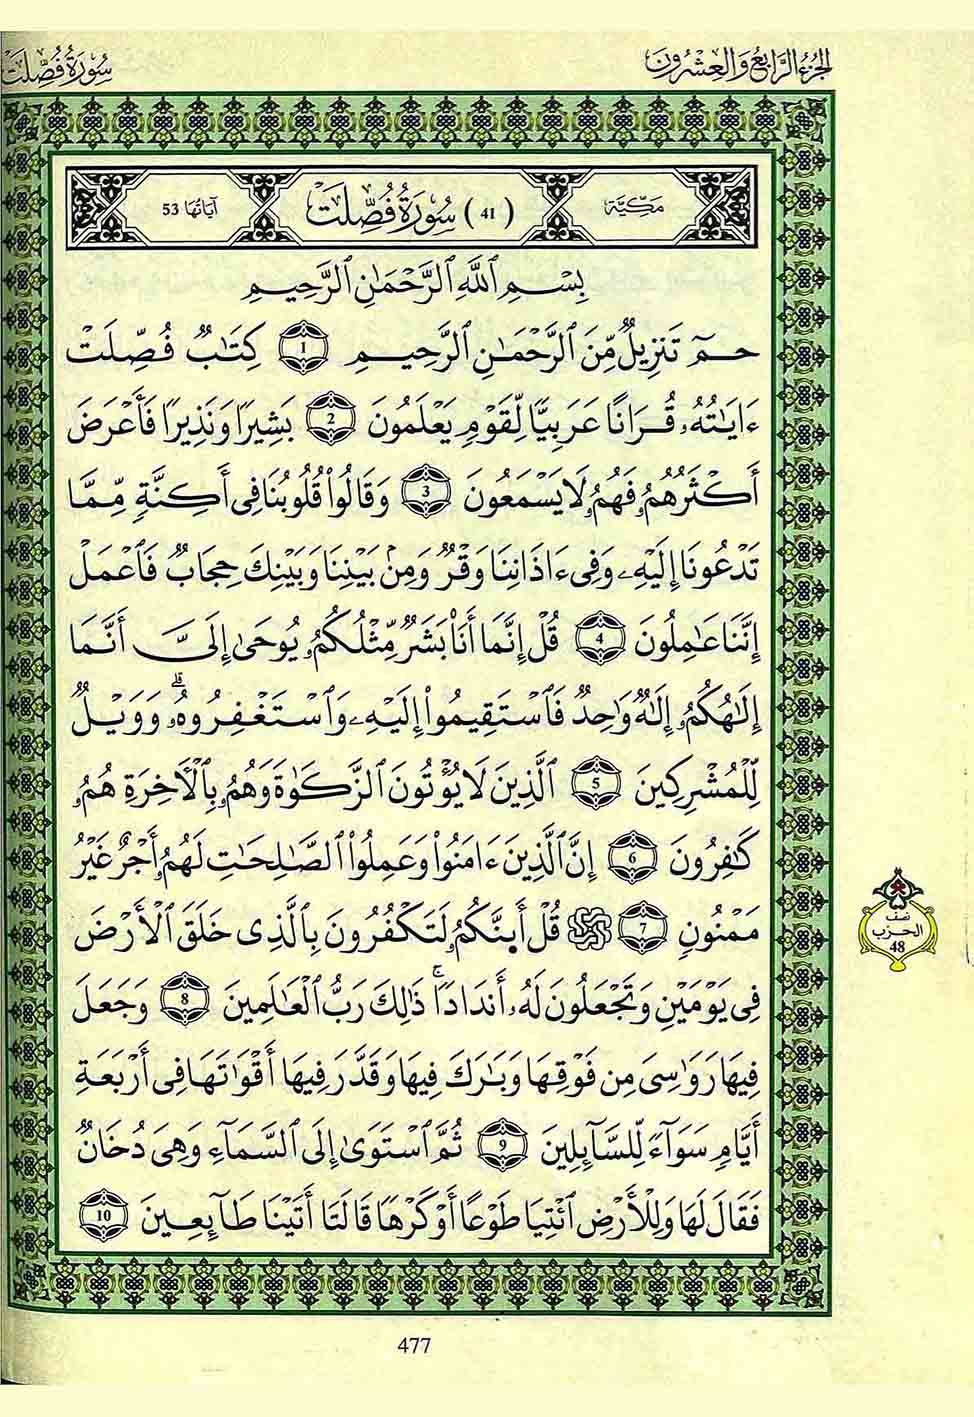 الجزء الرابع والعشرون
سورة فصلت
مكية
(41) سورة فصلت
آياتها 53
بِسْمِ اِ۬للَّهِ اِ۬لرَّحْمَٰنِ اِ۬لرَّحِيمِ
حمٓ تَنزِيلٌ مِّنَ اَ۬لرَّحْمَٰنِ اِ۬لرَّحِيمِ 1 كِتَٰبٌ فُصِّلَتْ
ءَايَٰتُهُۥ قُرَانًا عَرَبِيًّا لِّقَوْمٍ يَعْلَمُونَ 2 بَشِيرًا وَنَذِيرًا فَأَعْرَضَ
أَكْثَرُهُمُۥ فَهُمُۥ لَا يَسْمَعُونَ 3 وَقَالُواْ قُلُوبُنَا فِي أَكِنَّةٍ مِّمَّا
تَدْعُونَا إِلَيْهِۦ وَفِي ءَاذَانِنَا وَقْرٌ وَمِنۢ بَيْنِنَا وَبَيْنِكَ حِجَابٌ فَاَعْمَلْ
إِنَّنَا عَٰمِلُونَ 4 قُلْ إِنَّمَا أَنَا۠ بَشَرٌ مِّثْلُكُمُۥ يُوحَىٰ إِلَيَّ أَنَّمَا
إِلَٰهُكُمُۥ إِلَٰهٌ وَٰحِدٌ فَاَسْتَقِيمُواْ إِلَيْهِۦ وَاَسْتَغْفِرُوهُۥ وَوَيْلٌ
لِّلْمُشْرِكِينَ 5 اَ۬لَّذِينَ لَا يُؤْتُونَ اَ۬لزَّكَوٰةَ وَهُمُۥ بِالْأَخِرَةِ هُمُۥ
كَٰفِرُونَ 6 إِنَّ اَ۬لَّذِينَ ءَامَنُواْ وَعَمِلُواْ اُ۬لصَّٰلِحَٰتِ لَهُمُۥ أَجْرٌ غَيْرُ
مَمْنُونٍ 7 ۞ قُلْ أَٮِٕنَّكُمُۥ لَتَكْفُرُونَ بِالَّذِي خَلَقَ اَ۬لْأَرْضَ
فِي يَوْمَيْنِ وَتَجْعَلُونَ لَهُۥ أَندَادًا ذَٰلِكَ رَبُّ اُ۬لْعَٰلَمِينَ 8 وَجَعَلَ
فِيهَا رَوَٰسِيَ مِن فَوْقِهَا وَبَٰرَكَ فِيهَا وَقَدَّرَ فِيهَا أَقْوَٰتَهَا فِي أَرْبَعَةِ
أَيَّامٍ سَوَآءً لِّلسَّآئِلِينَ 9 ثُمَّ اَ۪سْتَوَىٰ إِلَى اَ۬لسَّمَآءِ وَهْيَ دُخَانٌ
فَقَالَ لَهَا وَلِلْأَرْضِ اِ۪ئْتِيَا طَوْعًا أَوْ كَرْهًا قَالَتَا أَتَيْنَا طَآئِعِينَ 10
نصف
الحزب
48
477